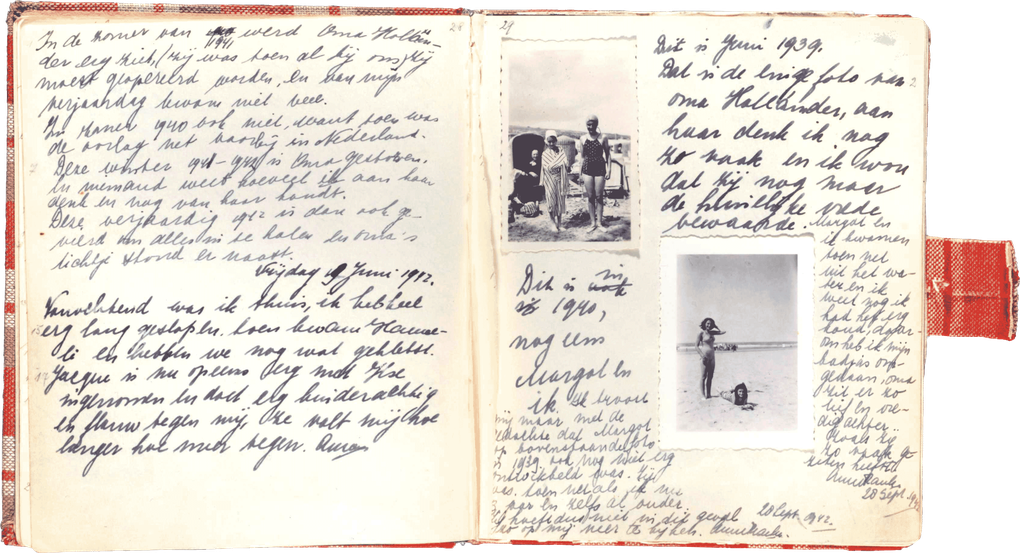 28
In de zomer van 1941 werd Oma Hollän-
der erg ziek, (zij was toen al bij ons,) zij
moest geopereerd worden, en van mijn
verjaardag kwam niet veel.
In zomer 1940 ook niet, want toen was
de oorlog net voorbij in Nederland.
Deze winter 1941-1942 is Oma gestorven.
En niemand weet hoeveel ik aan haar
denk en nog van haar houdt.
Deze verjaardag 1942 is dan ook ge-
vierd om alles in te halen en oma's
lichtje stond er naast.
Vrijdag 19 Juni 1942.
Vanochtend was ik thuis, ik heb heel
erg lang geslapen, toen kwam Hanne-
li en hebben we nog wat gekletst.
Jacque is nu opeens erg met Ilse
ingenomen en doet erg kinderachtig
en flauw tegen mij, ze valt mij hoe
langer hoe meer tegen.
29
Dit is Juni 1939.
Dat is de enige foto van
oma Hollander, aan
haar denk ik nog
zo vaak en ik wou
dat zij nog maar
de huiselijke vrede
bewaarde.
Margot en
ik kwamen
toen net
uit het wa-
ter en ik
weet nog ik
had het erg
koud, daar-
om heb ik mijn
badjas om-
gedaan, oma
zit er zo
lief en vre-
dig achter.
Zoals zij
zo vaak ge-
zeten heeft
Anne Frank.
28 Sept. 1942
Dit is in
1940,
nog eens
Margot en
ik. Ik troost
mij maar met de
gedachte dat Margot
op bovenstaande foto
in 1939 ook nog niet erg
ontwikkeld was. Zij
was toen net als ik nu
jaar en zelfs al ouder.
hoeft dus niet in dit geval
op mij neer te kijken. Anne Frank.
28 Sept. 1942.